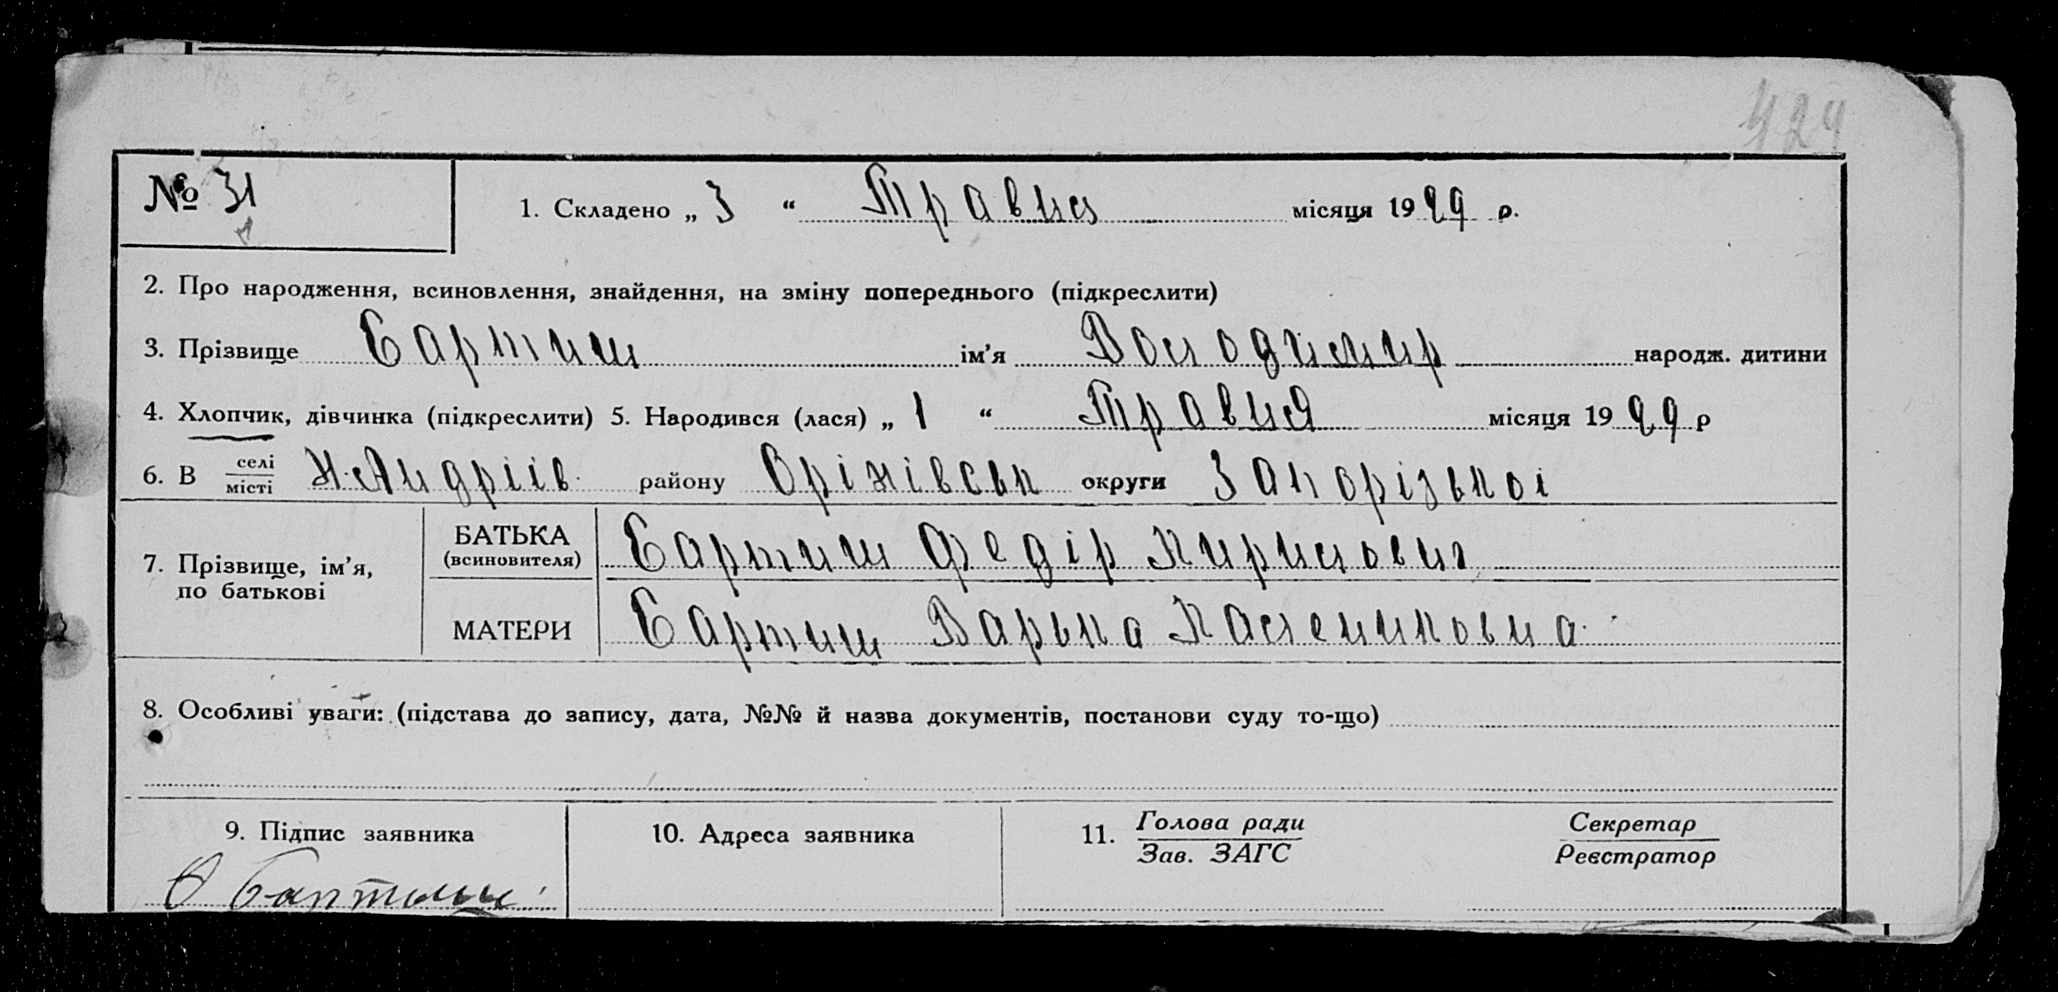 424
№ 31
1. Складено „ 3 “ Травня місяця 1929 р.
2. Про народження, всиновлення, знайдення, на зміну попереднього (підкреслити)
3. Прізвище Бартиш ім’я Володимир народж. дитини
4. Хлопчик, дівчинка (підкреслити) 5. Народився (лася) „ 1 “ Травня місяця 1929 р
6. В селі місті Н-Андріїв району Оріхівськ округи Запорізькоі
7. Прізвище, ім’я, по батькові
БАТЬКА (всиновителя) Бартиш Федір Кирилович
МАТЕРИ Бартиш Варька
8. Особливі уваги: (підстава до запису, дата, №№ й назва документів, постанови суду то-що)
9. Підпис заявника 10. Адреса заявника 11. Голова ради Секретар
Зав. ЗАГС Реєстратор
Бартыш